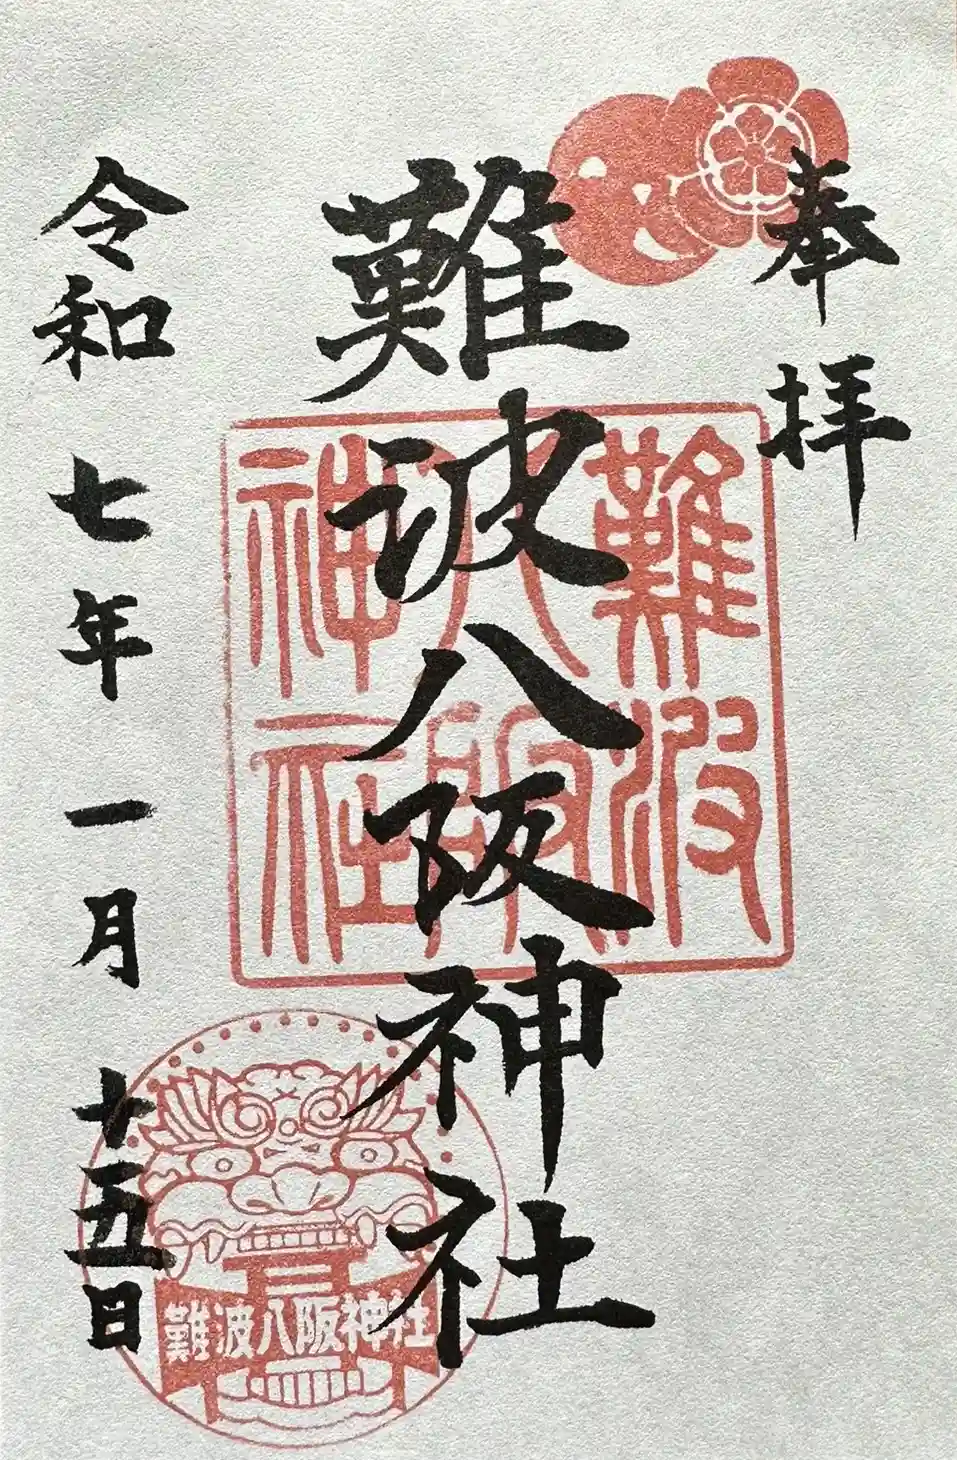 奉拝
難波八阪神社
令和七年一月十五日
難波
八阪
神社
難波八阪神社